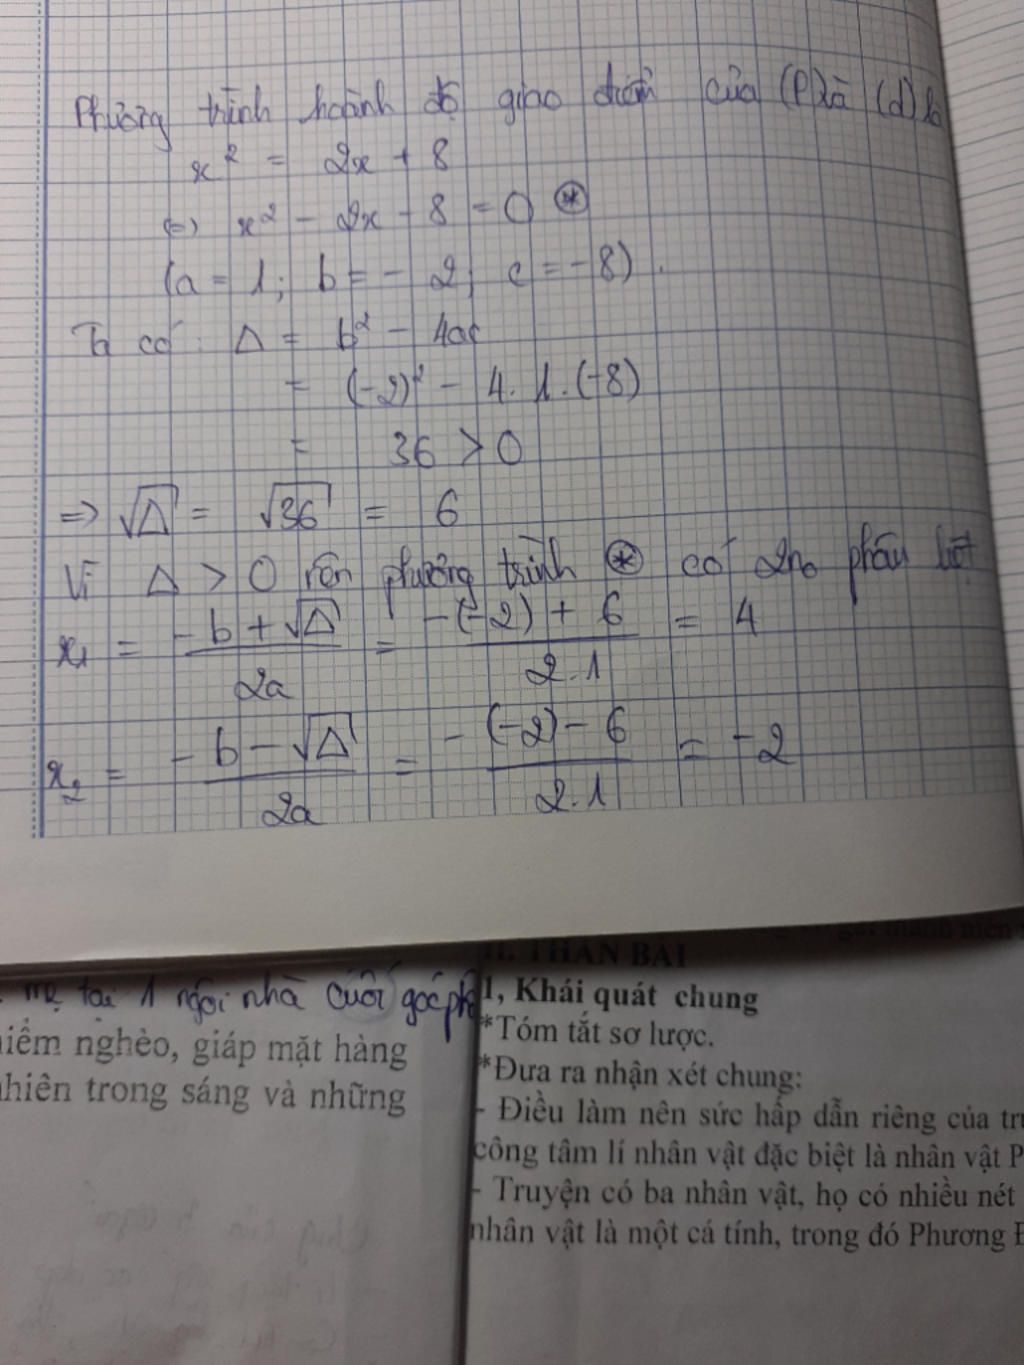 Phương trình hoành độ giao điểm của (P) và (d) là
x² = 2x + 8
(=) x² - 2x - 8 = 0 (*)
(a = 1; b = - 2; c = -8).
Ta có: Δ = b² - 4ac
= (-2)² - 4.1.(-8)
= 36 > 0
=> √Δ = √36 = 6
Vì Δ > 0 nên phương trình (*) có 2no phân biệt
x₁ = (-b + √Δ)/2a = (-(-2) + 6)/2.1 = 4
x₂ = (-b - √Δ)/2a = (-(-2) - 6)/2.1 = -2
mẹ tại 1 ngôi nhà cuối góc
iểm nghèo, giáp mặt hàng
hiên trong sáng và những
II. THÂN BÀI
1, Khái quát chung
*Tóm tắt sơ lược.
*Đưa ra nhận xét chung:
- Điều làm nên sức hấp dẫn riêng của
công tâm lí nhân vật đặc biệt là nhân vật P
- Truyện có ba nhân vật, họ có nhiều nét
nhân vật là một cá tính, trong đó Phương Đ